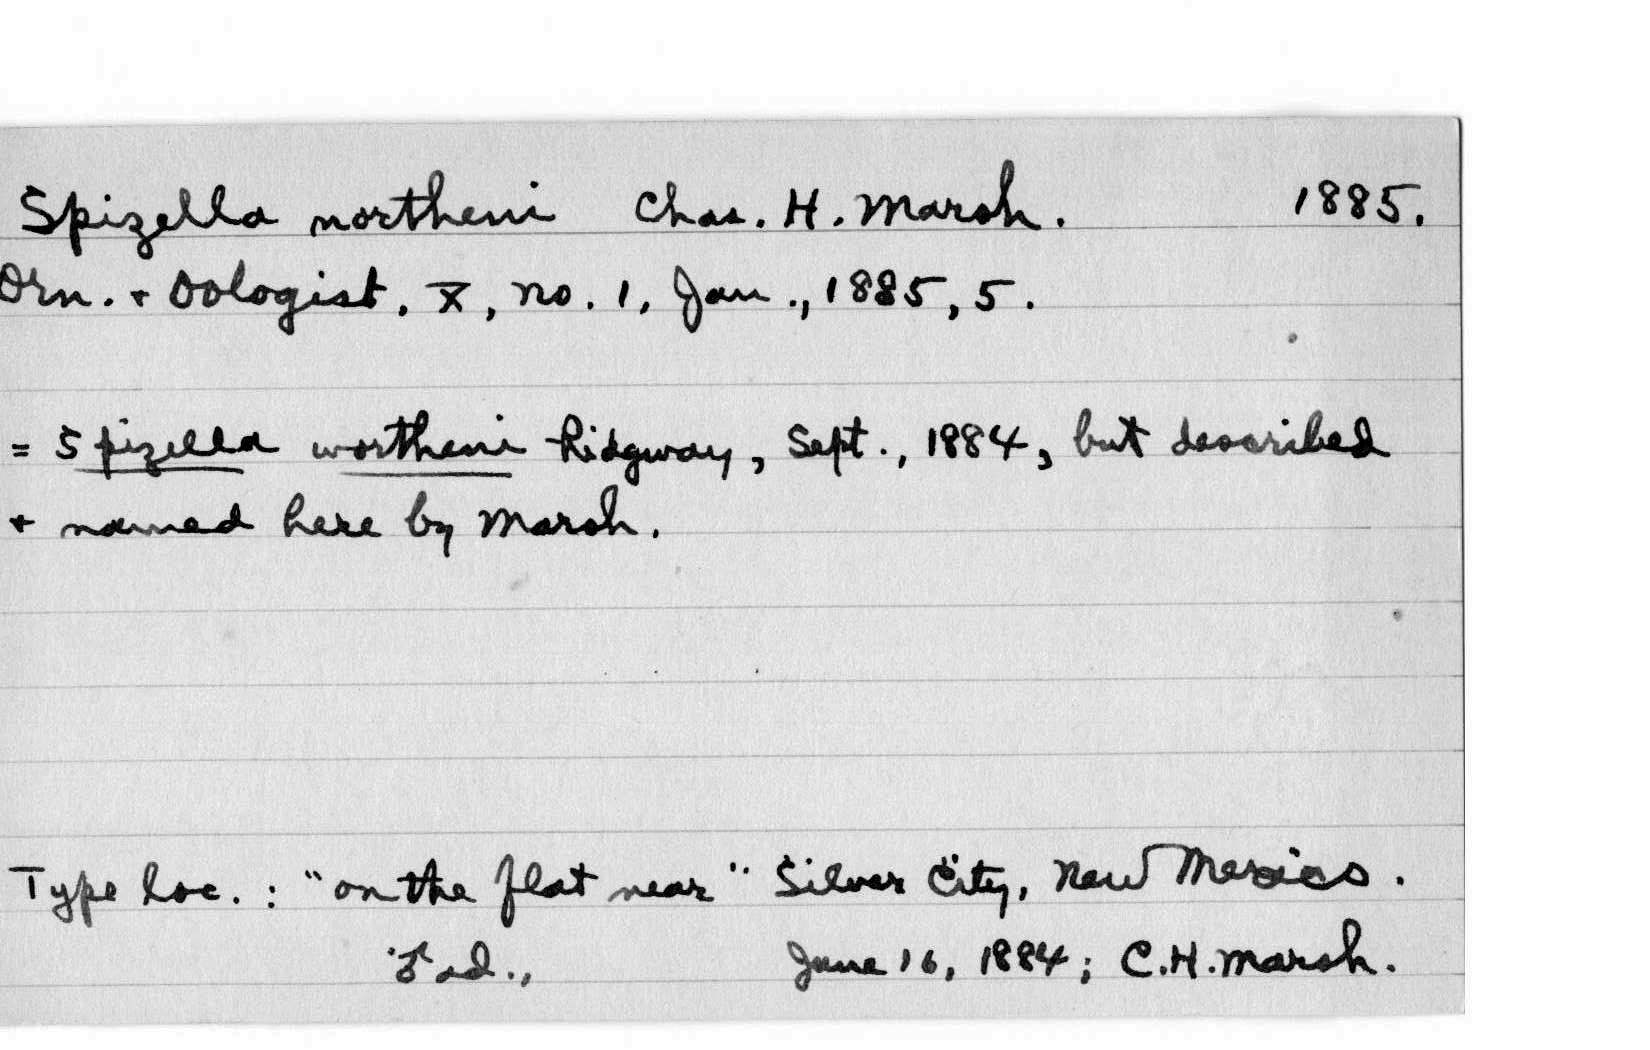 Spizella northeni Chas. H. Marsh. 1885.
Orn. + Oologist, X, no. 1, Jan., 1885, 5.
= Spizella wortheni Ridgway, Sept., 1884, but described
+ named here by Marsh.
Type loc. : "on the flat near" Silver City, New Mexico.
♂ ad., June 16, 1884; C.H. Marsh.